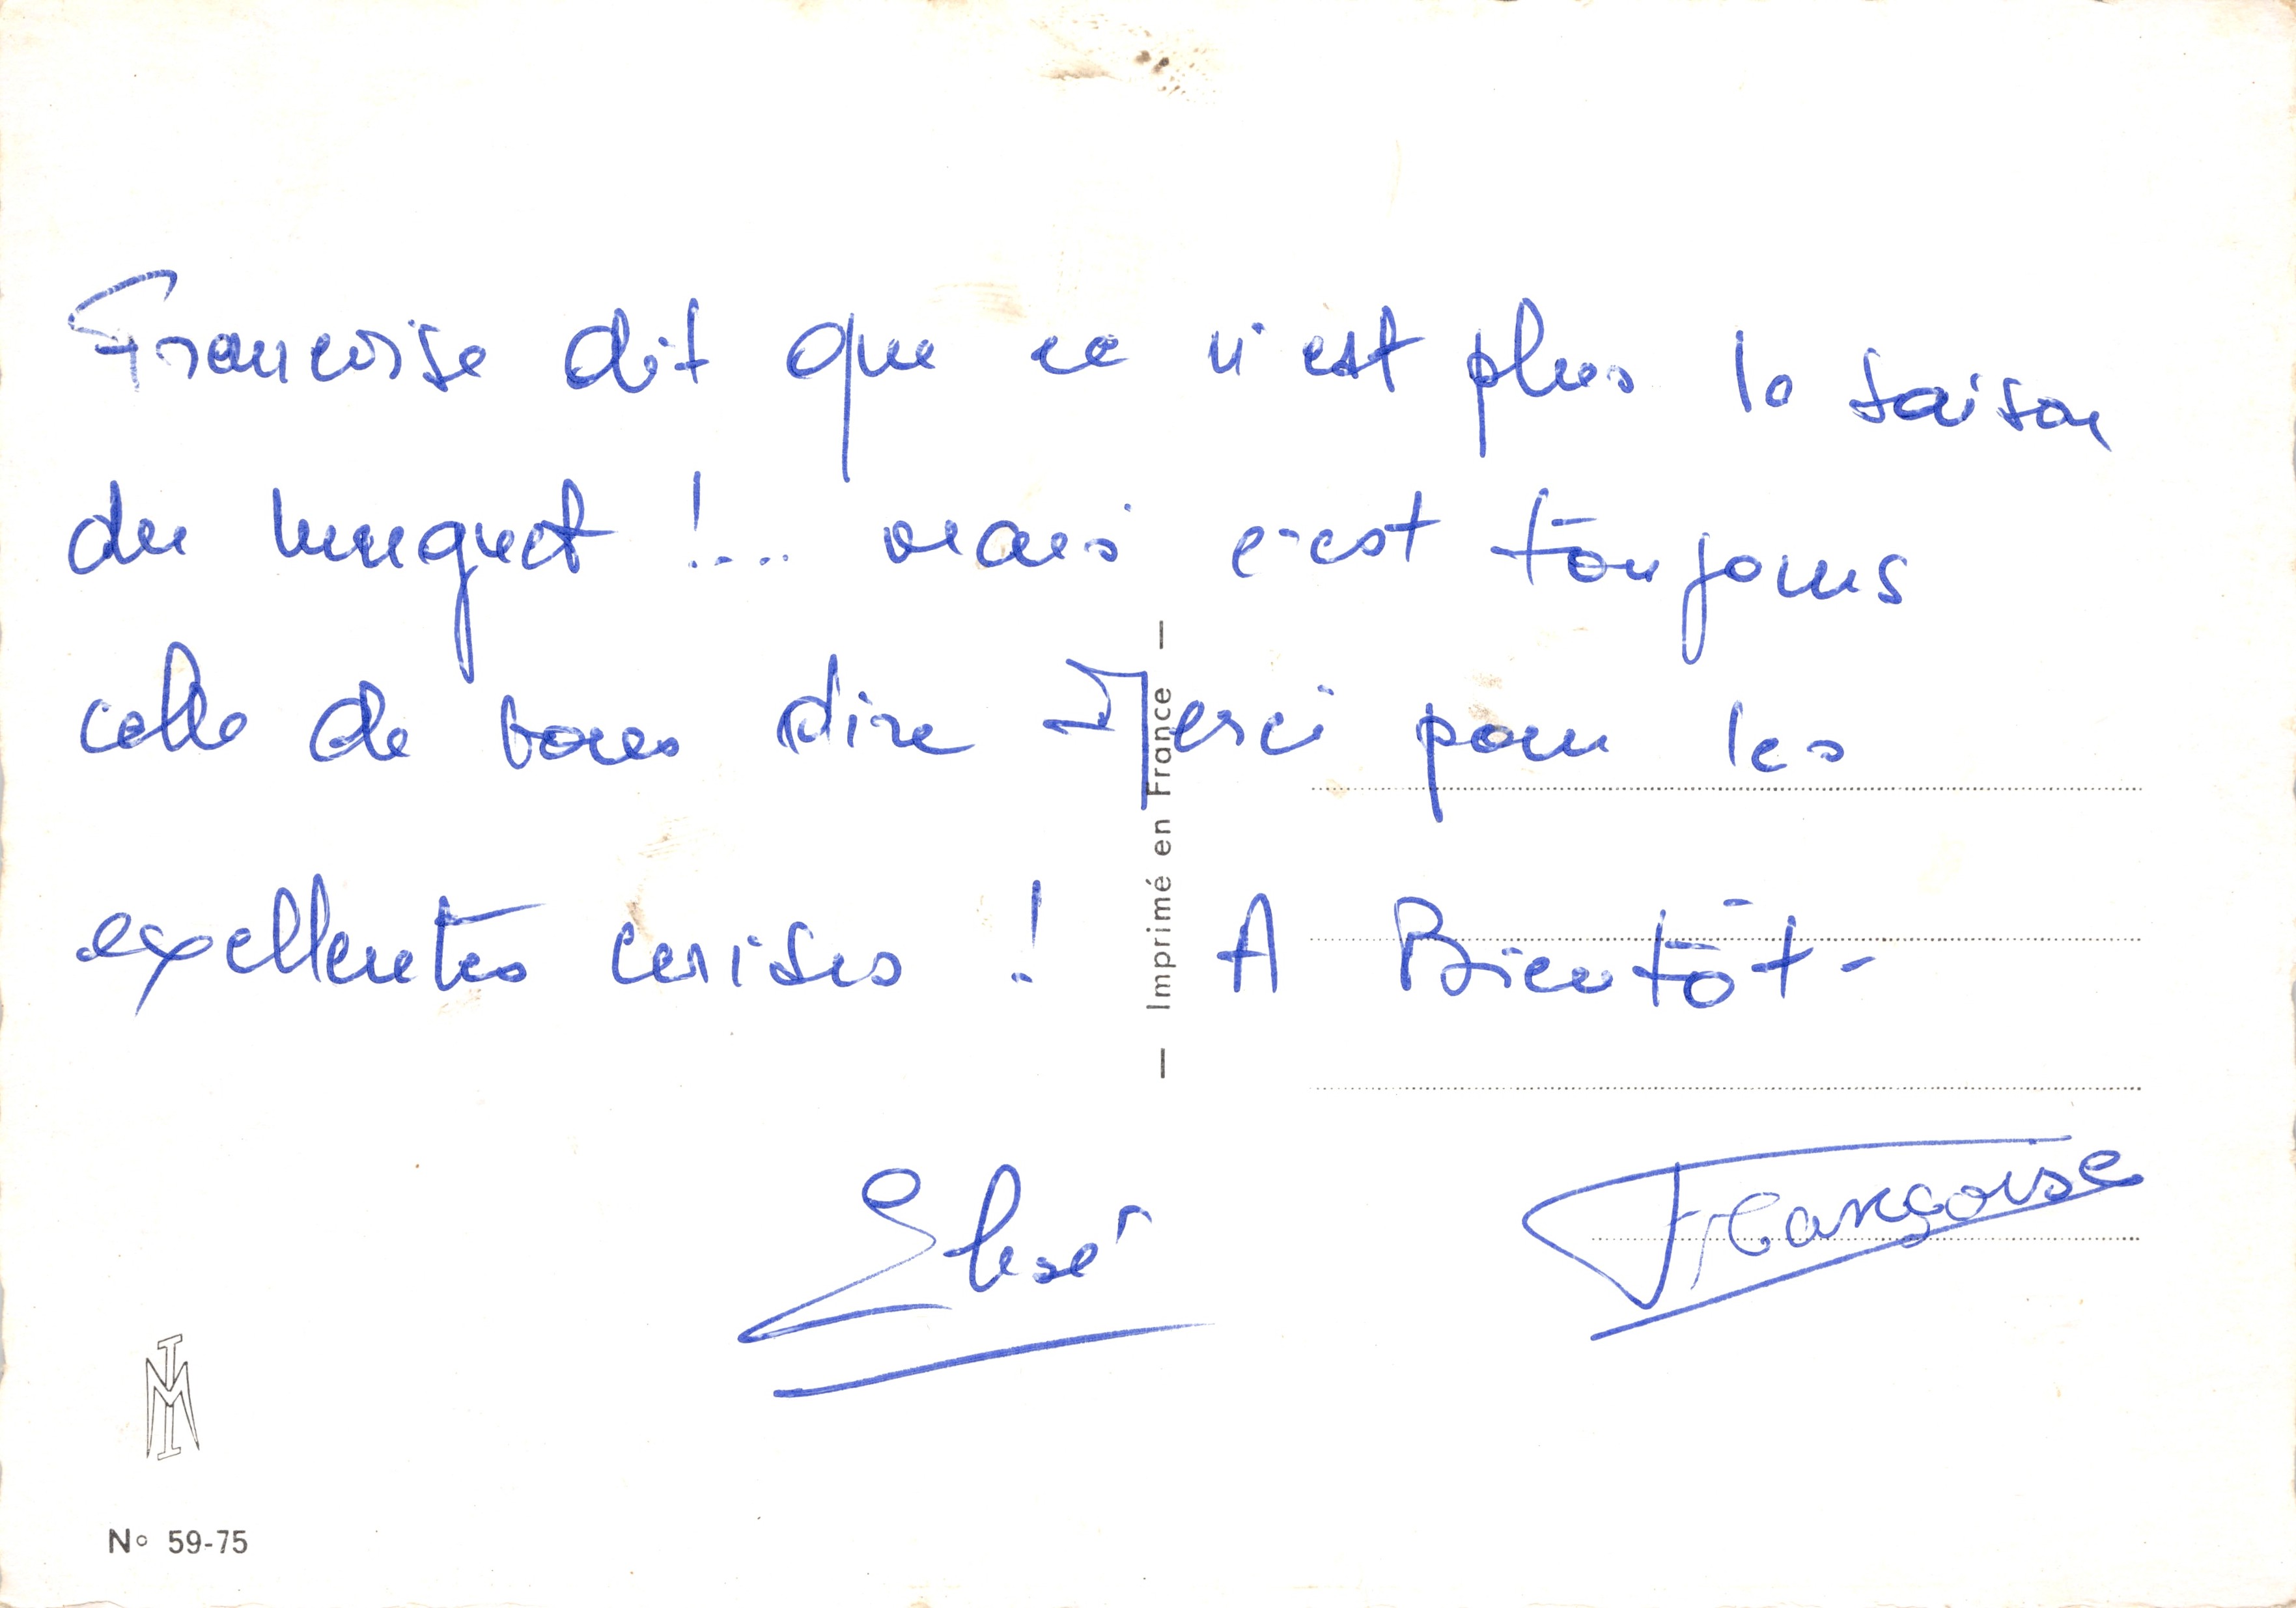 Francoise dit que ce n'est plus la saison
du muguet !... mais c'est toujours
celle de vous dire Merci pour les
excellentes cerises ! A Bientôt -
Françoise
— Imprimé en France —
N° 59-75